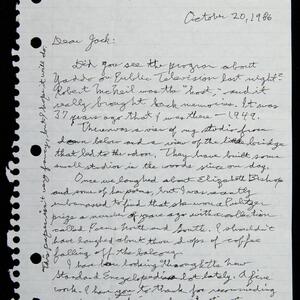 October 20, 1986
Dear Jack:
Did you see the program about
Yaddo on Public Television last night?
Robert McNeil was the "host," and it
really brought back memories. It was
37 years ago that I was there – 1949.
There was a view of my studio from
down below and a view of the little bridge
that led to the door. They have built some
small studios in the woods since our day.
Once we laughed about Elizabeth Bishop
and some of her poems, but I was recently
embarrassed to find that she won a Pulitzer
prize a number of years ago with a collection
called Poems North and South. I shouldn't
have laughed about those drops of coffee
falling off the balcony.
I have been looking through the new
Standard Encyclopedia a lot lately. A fine
work. I have you to thank for recommending
This paper is a very funny, but I hope it will do.